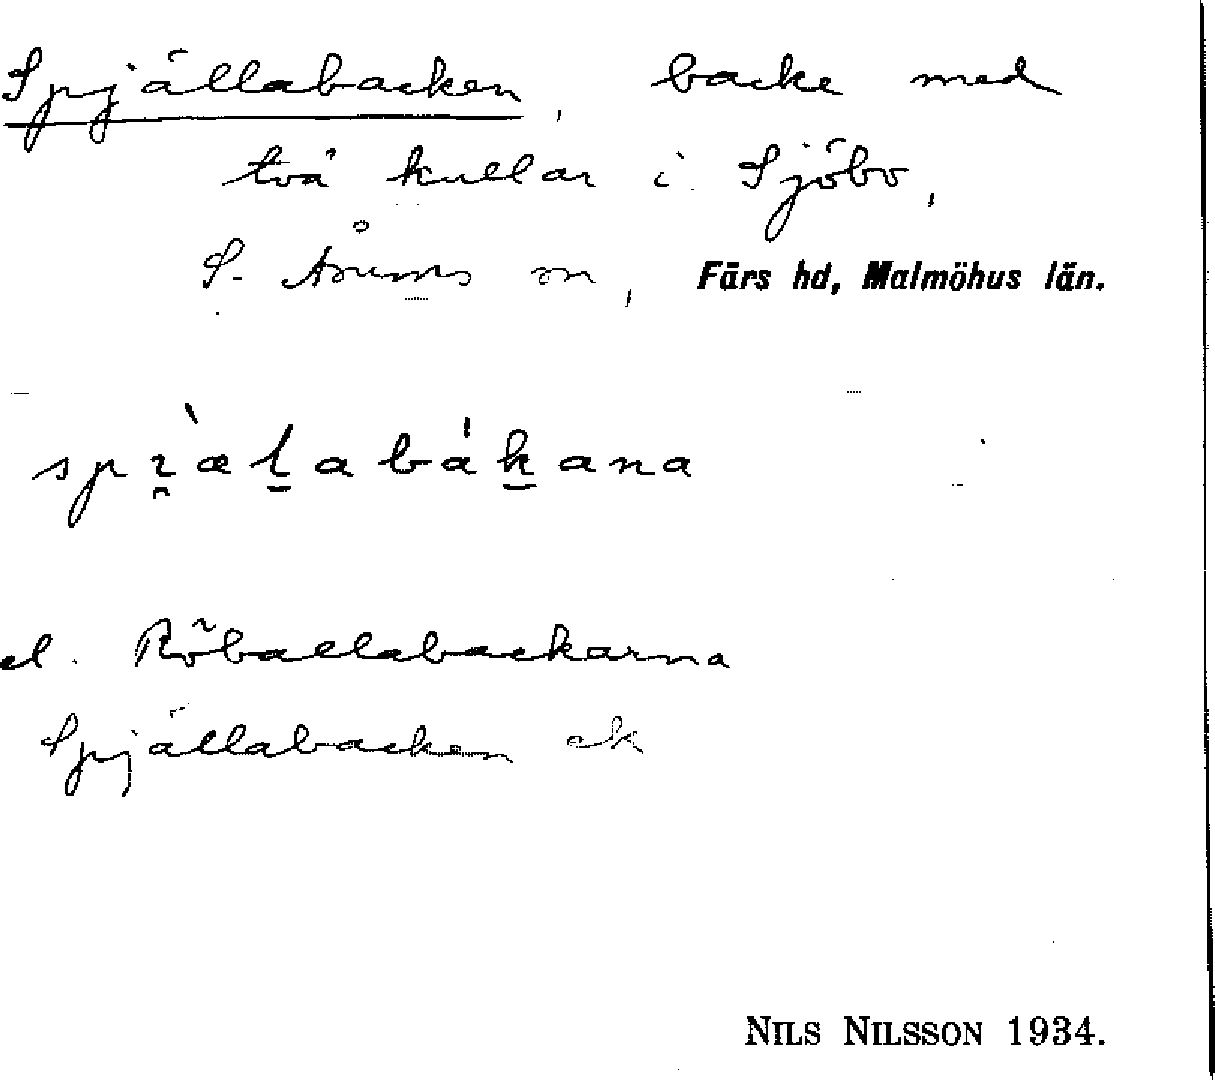 Spjällabacken, backe med
två kullar i Sjöbo,
S. Åsums sn, Färs hd, Malmöhus län.
el. Röballabackarna
Spjällabacken ek
NILS NILSSON 1934.